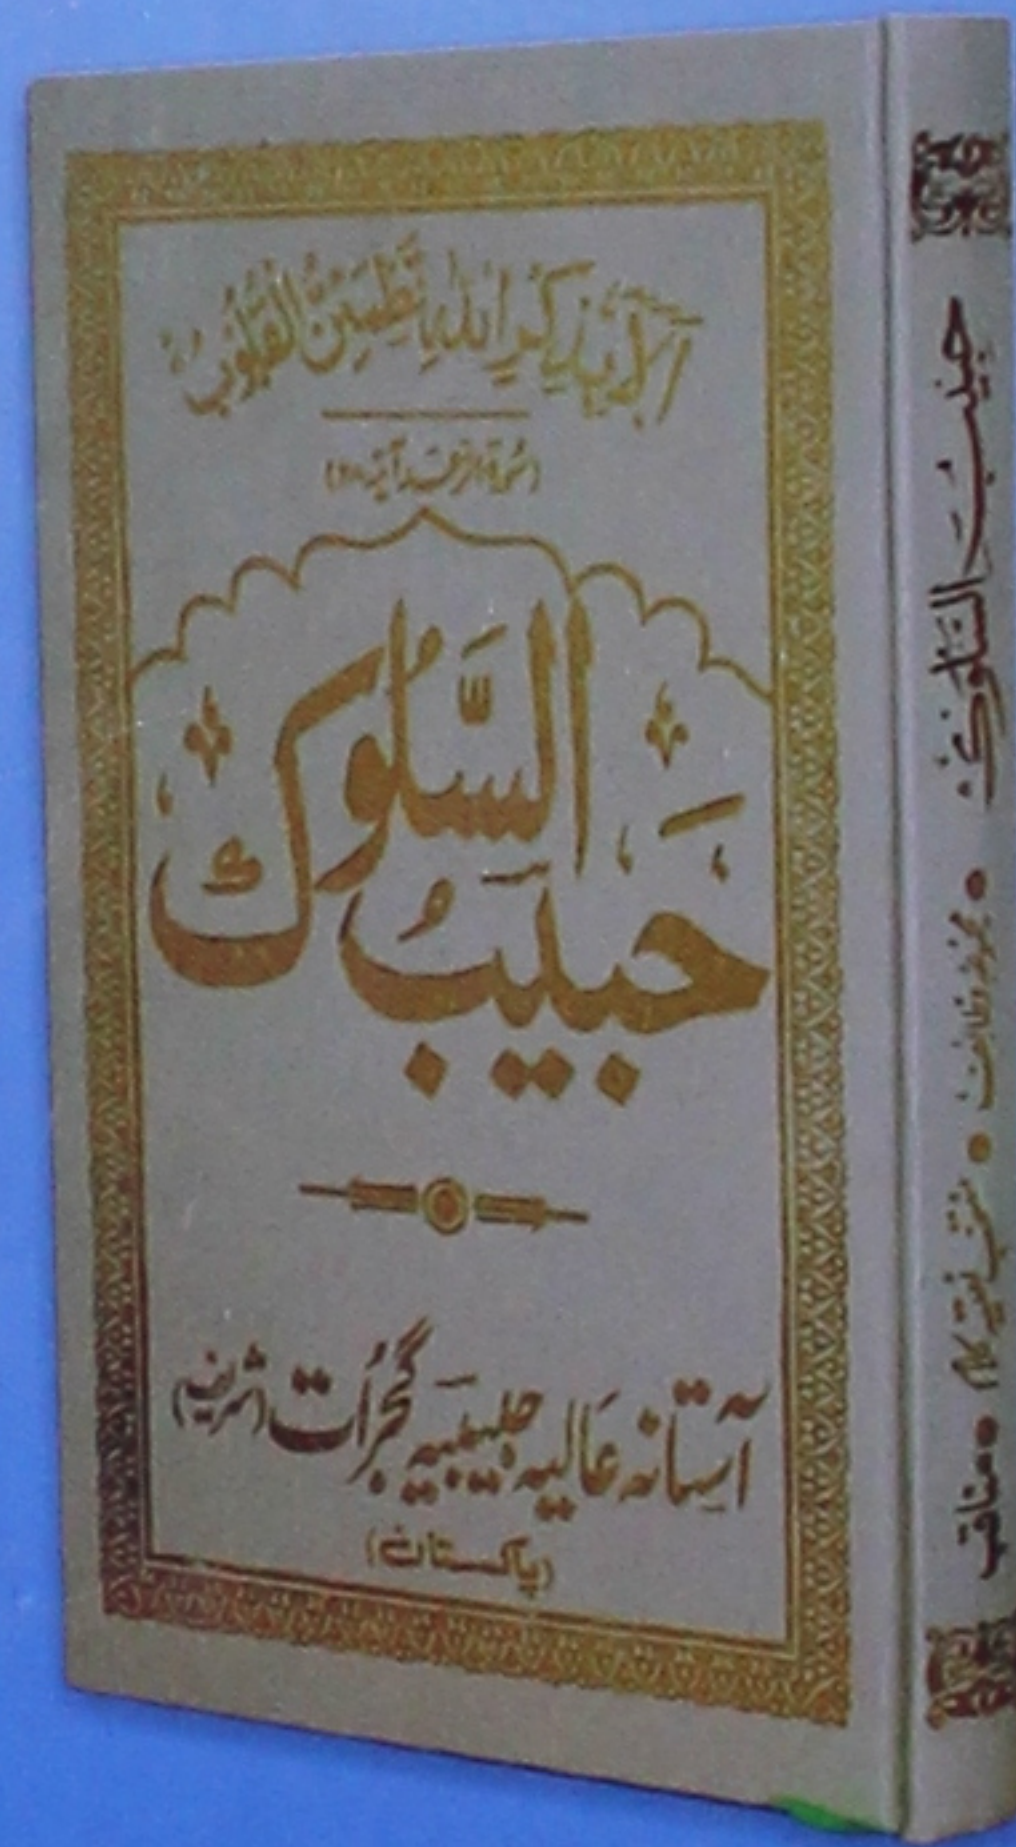 اَلَا بِذِكْرِ اللّٰهِ تَطْمَئِنُّ الْقُلُوْبُ
(سُورۃ الرعد آیۃ
حَبِیبُ السَّلُوک
آستانہ عَالیہ حبیبیہ گجرات (شریف)
(پاکستان)
حبیبُ السَّلوک • مجموعہ وظائف • منتخب نعتیہ کلام • مناقب